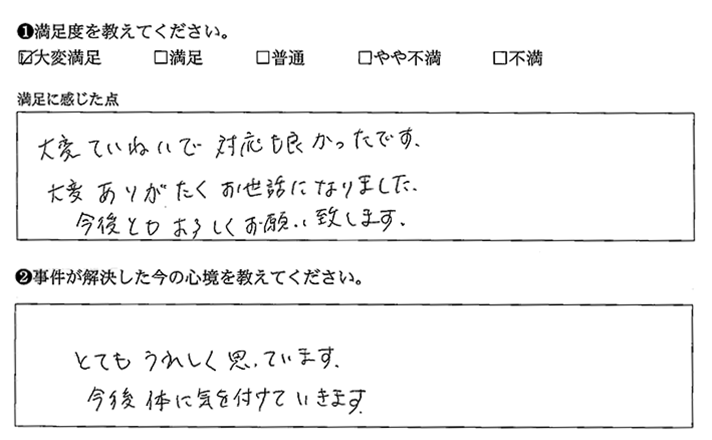 ❶満足度を教えてください。
☑大変満足 □満足 □普通 □やや不満 □不満
満足に感じた点
大変ていねいで対応も良かったです.
大変ありがたくお世話になりました.
今後ともよろしくお願い致します.
❷事件が解決した今の心境を教えてください。
とてもうれしく思っています.
今後体に気を付けていきます